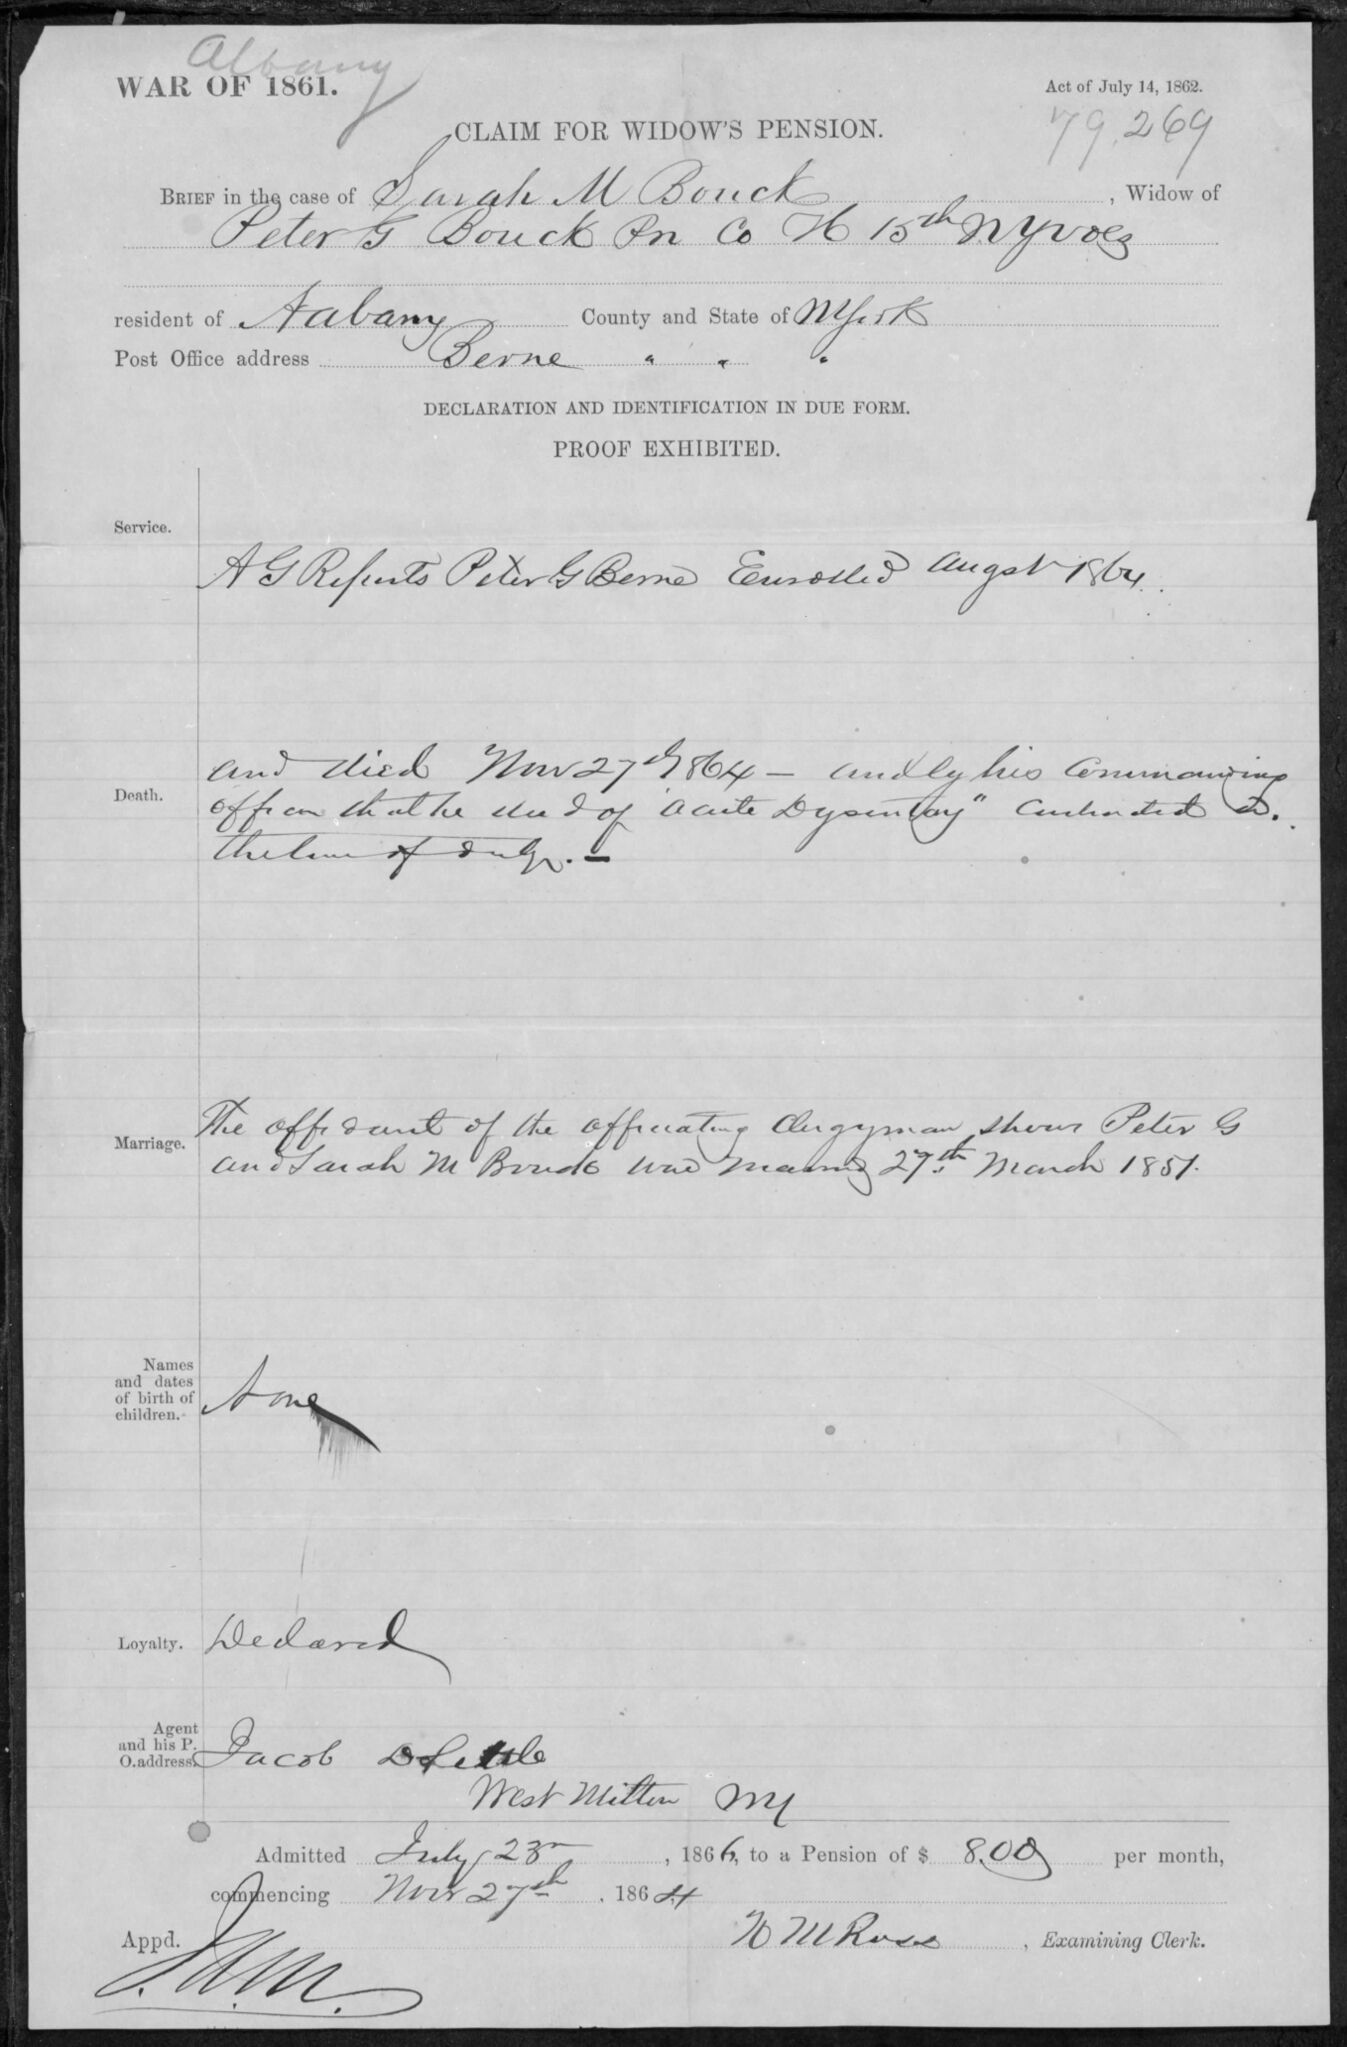 Albany
WAR OF 1861.
Act of July 14, 1862.
79,269
CLAIM FOR WIDOW'S PENSION.
BRIEF in the case of Sarah M Bouck, Widow of
Peter G Bouck Co H 15th NY Vols
resident of Aabany County and State of NYork
Post Office address Berne " " "
DECLARATION AND IDENTIFICATION IN DUE FORM.
PROOF EXHIBITED.
Service.
A G Reports Peter G Berne Enrolled Augst 1864.
Death.
and died Nov 27th 1864 — and by his Commanding
officer that he died of "acute Dysentery" contracted in.
the line of duty. —
Marriage.
The affidavit of the officiating Clergyman shows Peter G
and Sarah M Bouck was married 27th March 1851.
Names
and dates
of birth of
children.
None
Loyalty.
Declared
Agent
and his P.
O. address.
Jacob
West Milton NY
Admitted July 23, 1866, to a Pension of $ 8.00 per month,
commencing Nov 27th, 1864
Appd.
W M Ross, Examining Clerk.